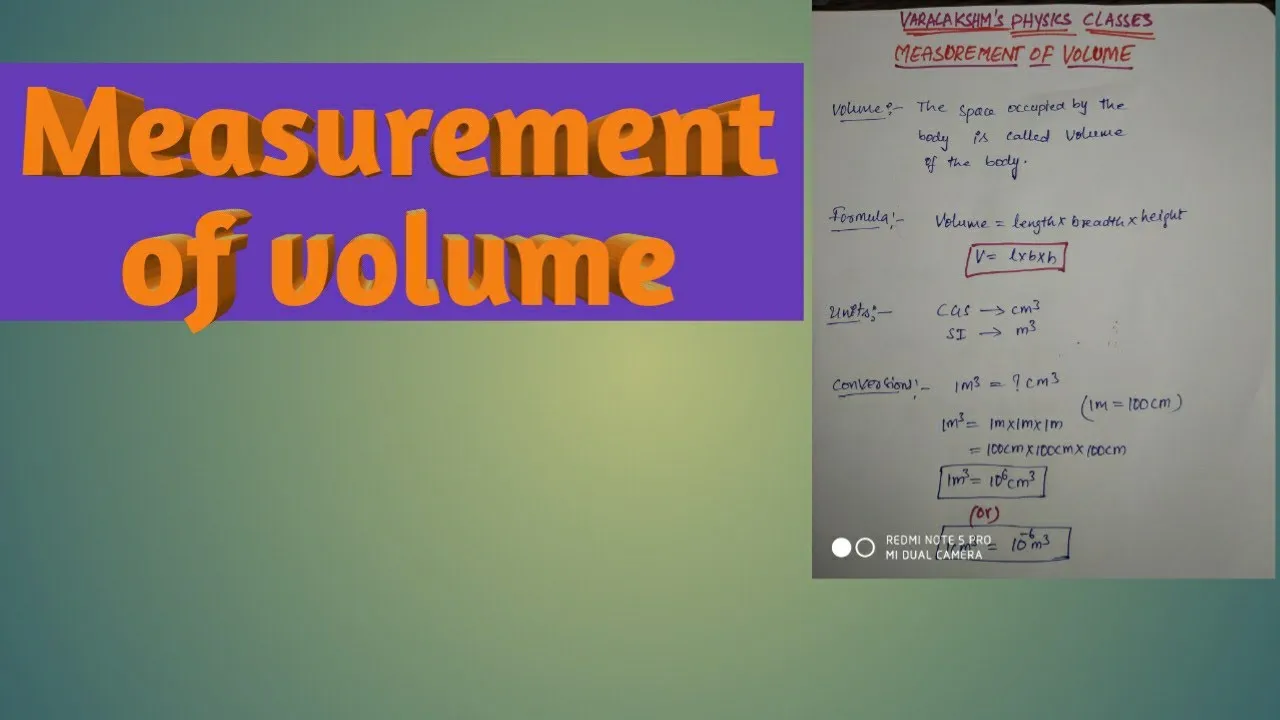 Measurement
of volume
VARALAKSHM'S PHYSICS CLASSES
MEASUREMENT OF VOLUME
Volume:- The space occupied by the
body is called Volume
of the body.
Formula:- Volume = length x breadth x height
V = l x b x h
Units:- CGS → cm³
SI → m³
Conversion:- 1m³ = ? cm³
(1m = 100cm)
1m³ = 1m x 1m x 1m
= 100cm x 100cm x 100cm
1m³ = 10⁶cm³
(or)
= 10⁻⁶m³
REDMI NOTE 5 PRO
MI DUAL CAMERA